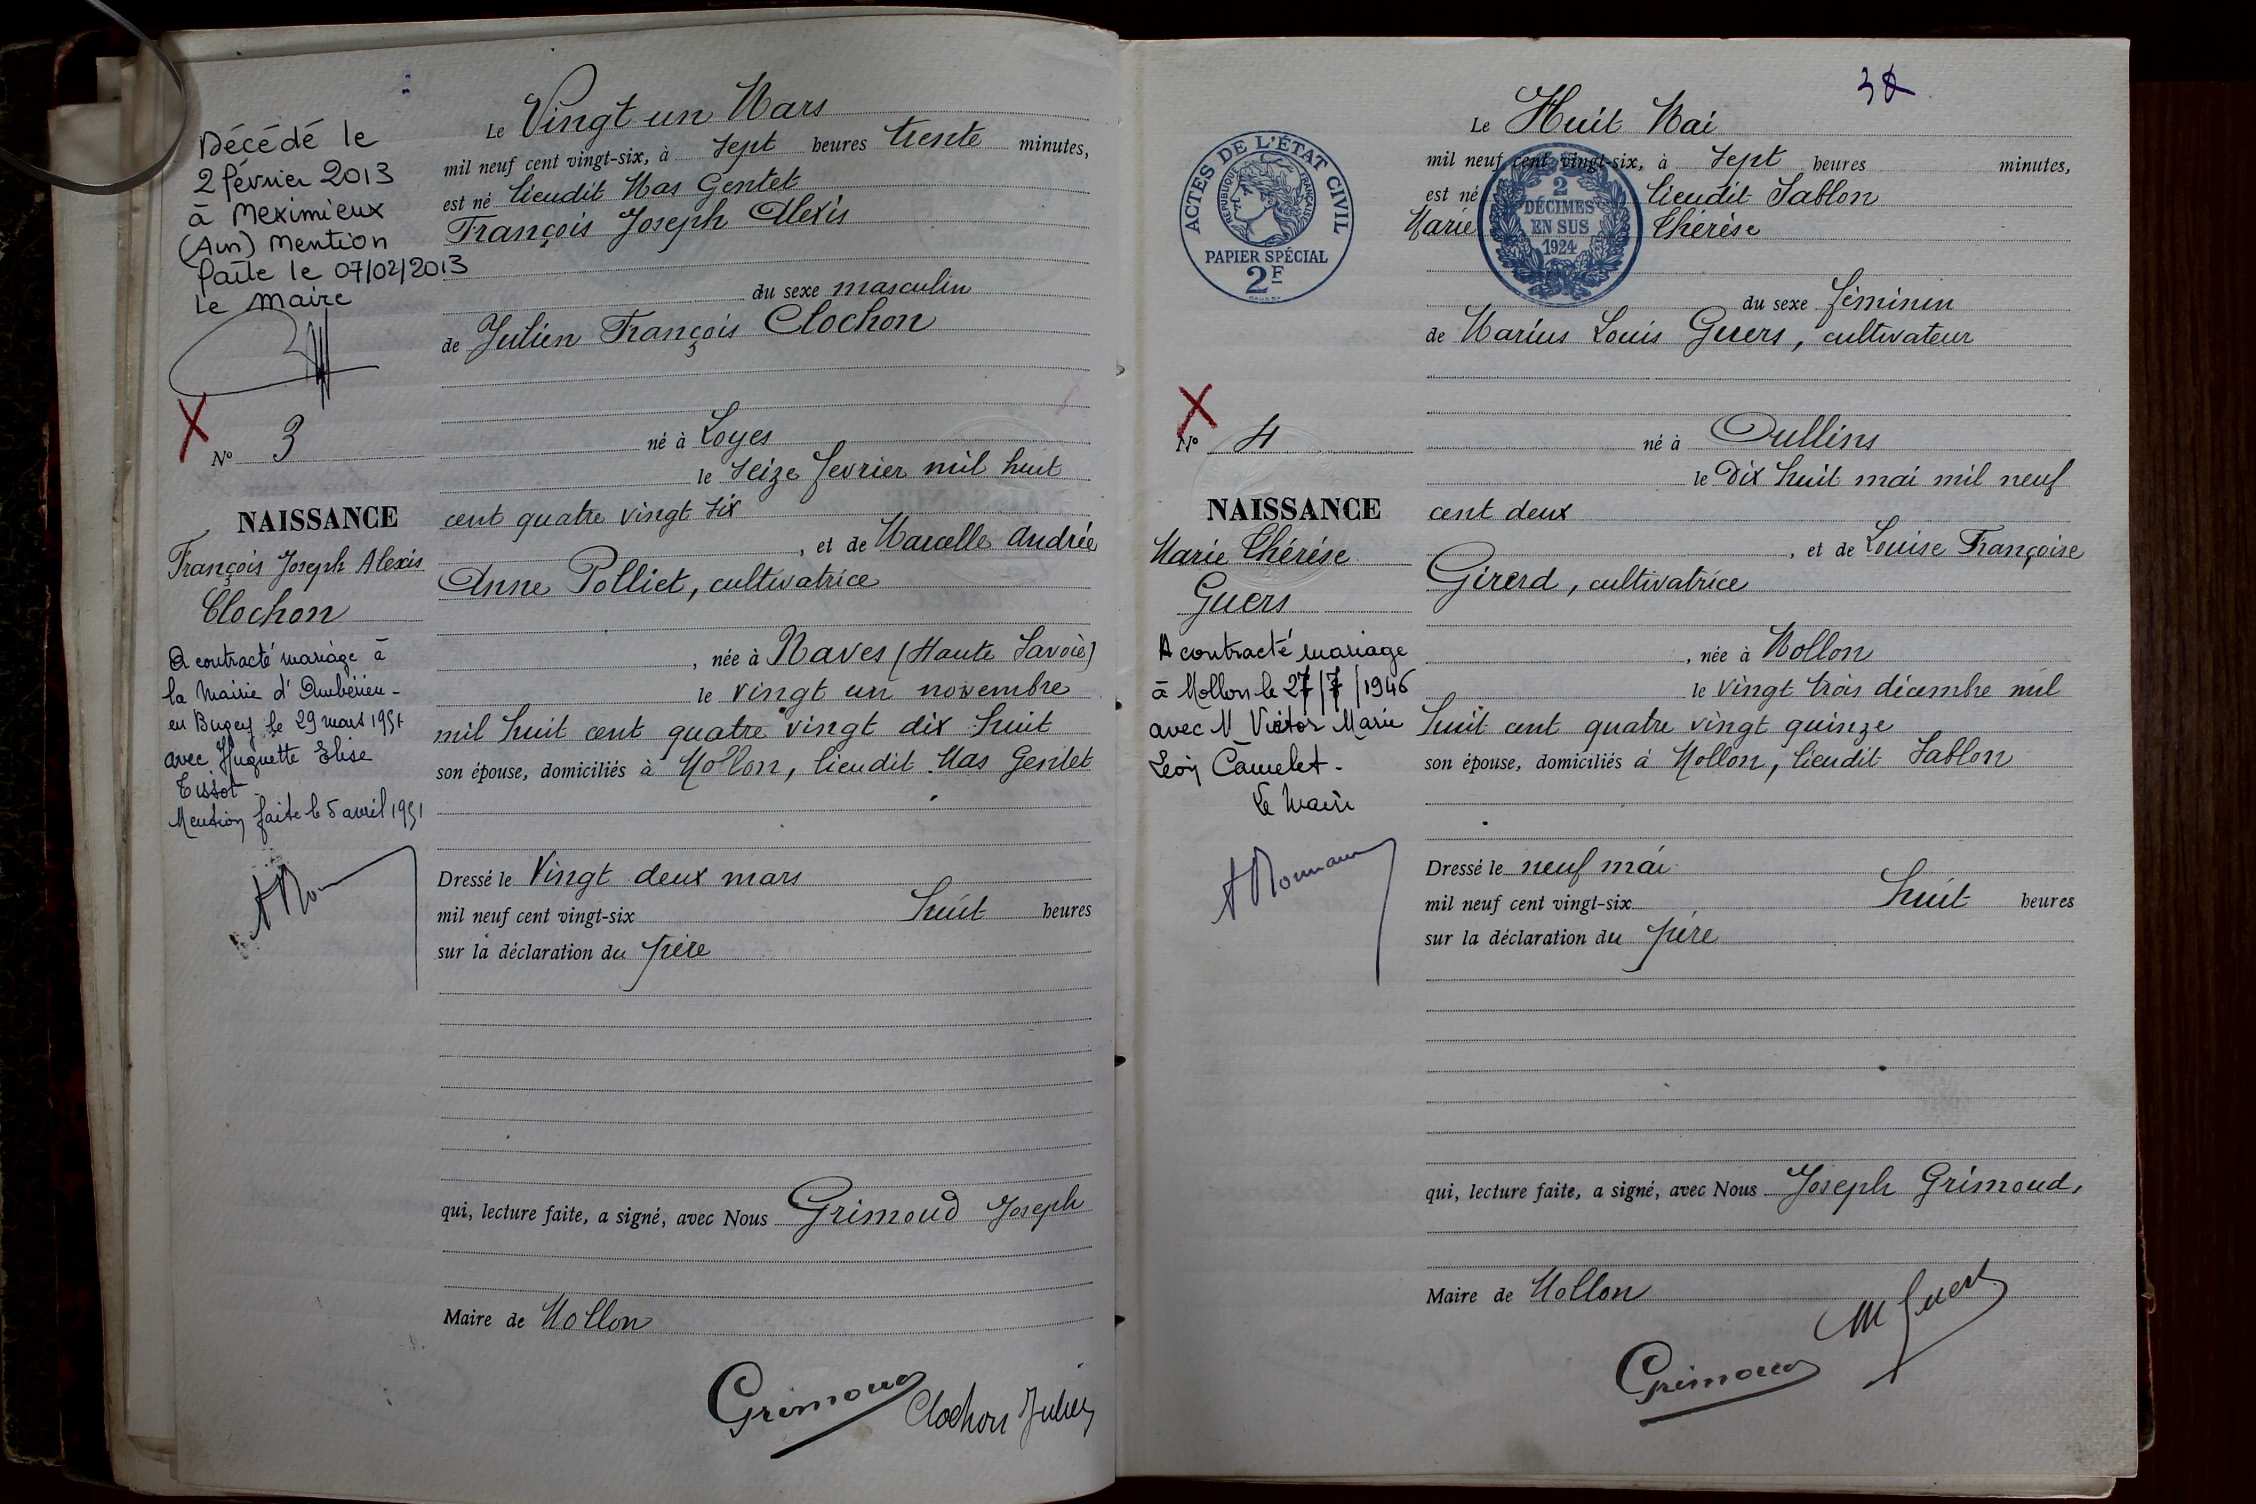 Décédé le
2 février 2013
à Meximieux
(Ain) Mention
faite le 07/02/2013
Le Maire
N° 3
NAISSANCE
François Joseph Alexis
Clochon
A contracté mariage à
la Mairie d'Ambérieu-
en Bugey le 29 mars 1951
avec Huguette Elise
Tissot
Mention faite le 5 avril 1951
Le Vingt un Mars
mil neuf cent vingt-six, à sept heures trente minutes,
est né lieudit Mas Gentet
François Joseph Alexis
du sexe masculin
de Julien François Clochon
né à Loyes
le seize fevrier mil huit
cent quatre vingt six
, et de Marcelle Andrée
Anne Polliet, cultivatrice
, née à Naves (Haute Savoie)
le vingt un novembre
mil huit cent quatre vingt dix huit
son épouse, domiciliés à Mollon, lieudit Mas Gentet
Dressé le Vingt deux mars
mil neuf cent vingt-six huit heures
sur la déclaration du père
qui, lecture faite, a signé, avec Nous Grimoud Joseph
Maire de Mollon
Grimoud Clochon Julien
ACTES DE L'ÉTAT CIVIL
RÉPUBLIQUE FRANÇAISE
PAPIER SPÉCIAL
2F
N° 4
NAISSANCE
Marie Thérèse
Guers
A contracté mariage
à Mollon le 27/7/1946
avec M Victor Marie
Léon Camelet.
Le Maire
Le Huit Mai
mil neuf cent vingt-six, à sept heures minutes,
est né lieudit Sablon
Marie Thérèse
2
DÉCIMES
EN SUS
1924
du sexe féminin
de Marius Louis Guers, cultivateur
né à Oullins
le dix huit mai mil neuf
cent deux
, et de Louise Françoise
Girerd, cultivatrice
, née à Mollon
le vingt trois décembre mil
huit cent quatre vingt quinze
son épouse, domiciliés à Mollon, lieudit Sablon
Dressé le neuf mai
mil neuf cent vingt-six huit heures
sur la déclaration du père
qui, lecture faite, a signé, avec Nous Joseph Grimoud,
Maire de Mollon
M Guers
Grimoud